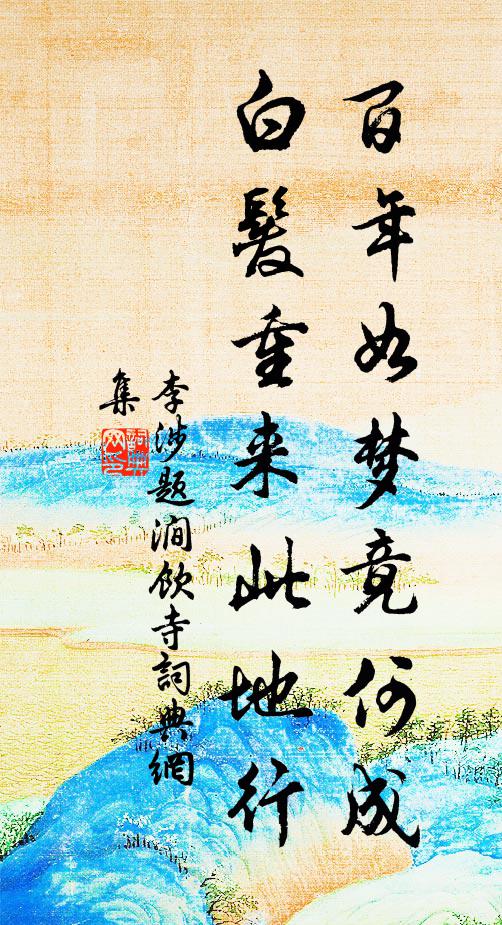 百年如梦竟何成
白髮重来此地行
李涉题涧饮寺詞典網
集